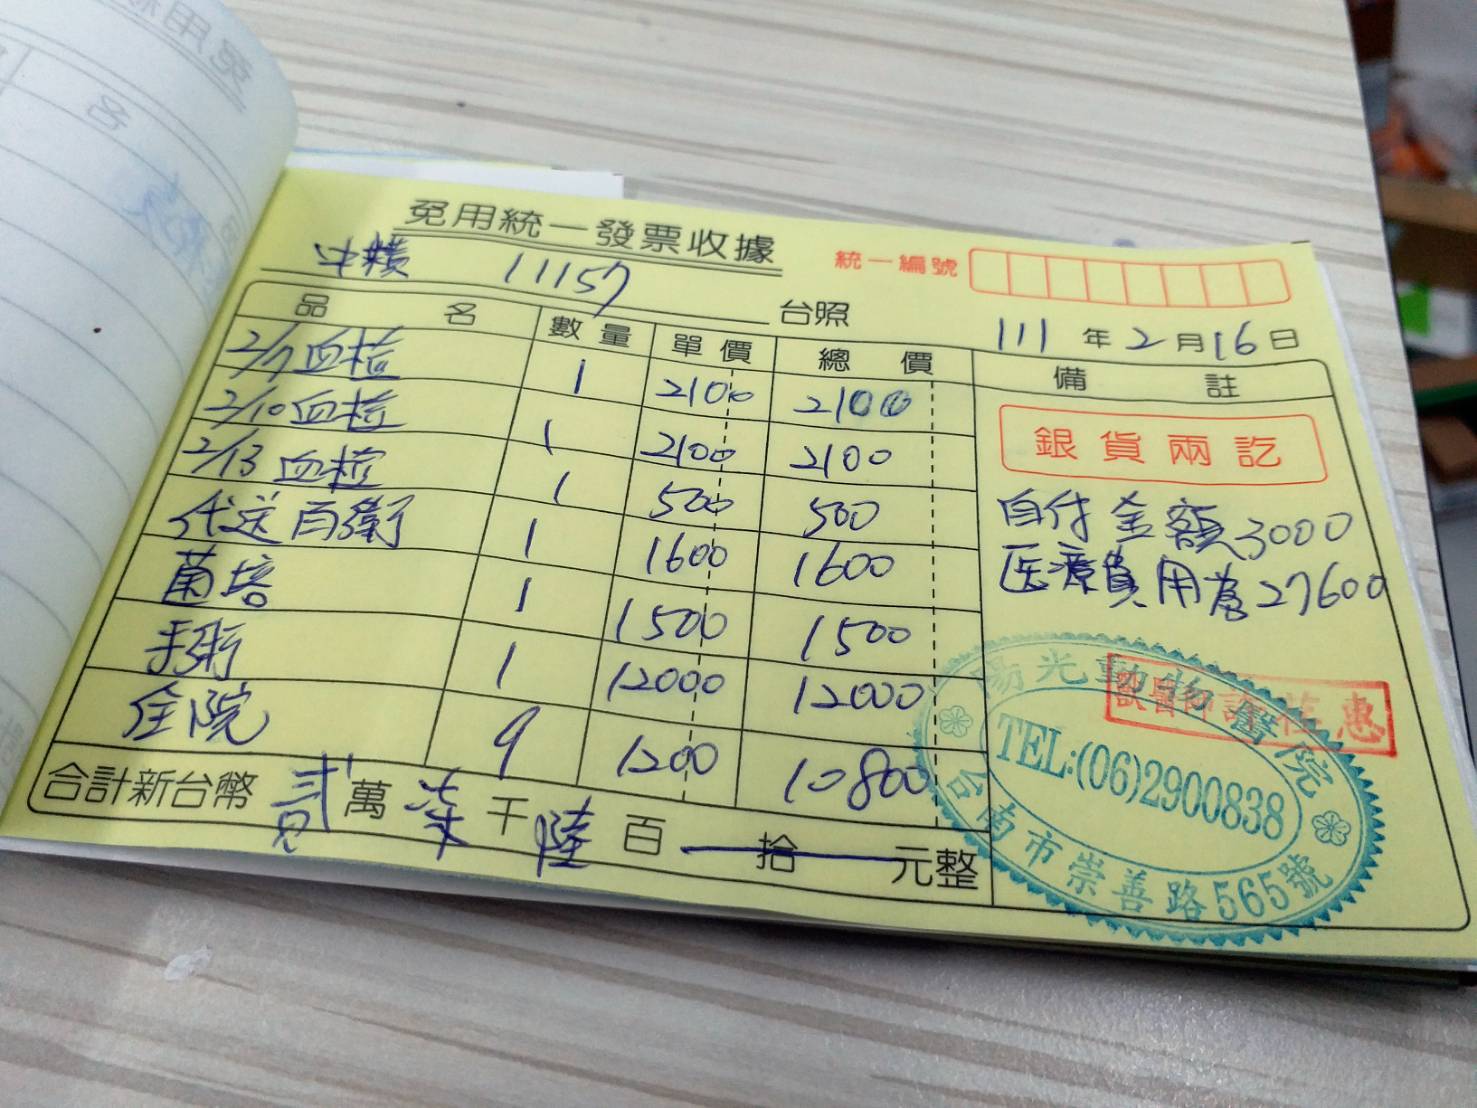 免用統一發票收據
統一編號
11157 台照
111 年 2 月 16 日
品名 數量 單價 總價 備註
2/7 血檢 1 2100 2100
2/10 血檢 1 2100 2100
2/13 血檢 1 500 500
代送 1 1600 1600
菌培 1 1500 1500
手術 1 12000 12000
住院 9 1200 10800
合計新台幣 貳 萬 柒 千 陸 百 拾 元整
銀貨兩訖
自付金額3000
医療費用為27600
陽光動物醫院
TEL:(06)2900838
台南市崇善路565號